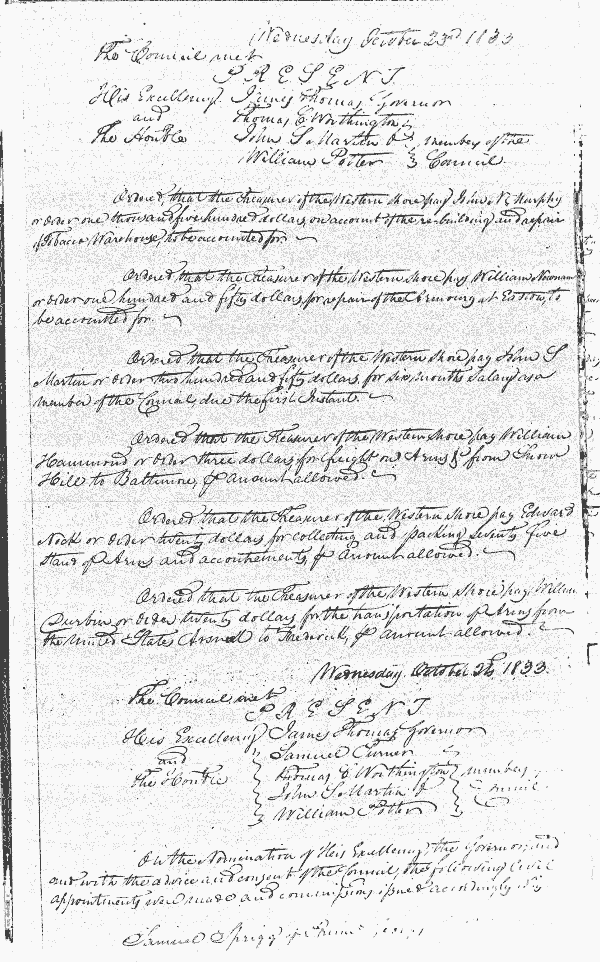 Wednesday October 23rd 1833
The Council met
PRESENT
His Excellency James Thomas Governor
and Thomas C Worthington
The Honble John S Martin & members of the
William Potter Council
Ordered, that the Treasurer of the Western Shore pay John N Murphy
or order one thousand five hundred dollars, on account of the rebuilding and repair
of Tobacco Warehouse, to be accounted for
Ordered that the Treasurer of the Western Shore pay William Newnam
or order one hundred and fifty dollars, for repair of the Armory at Easton, to
be accounted for
Ordered that the Treasurer of the Western Shore pay John S
Martin or order two hundred and fifty dollars, for six months Salary as a
member of the Council, due the first Instant.
Ordered that the Treasurer of the Western Shore pay William
Hammond or order three dollars for freight on Arms &c from Snow
Hill to Baltimore, pr amount allowed.
Ordered that the Treasurer of the Western Shore pay Edward
Nock or order twenty dollars for collecting and packing seventy five
Stand of Arms and accoutrements, pr amount allowed.
Ordered that the Treasurer of the Western Shore pay William
Durbin or order twenty dollars for the transportation of Arms from
the United States Arsenal to Frederick, pr amount allowed.
Wednesday October 1833.
The Council met
PRESENT
His Excellency James Thomas Governor
and Samuel Turner
The Honble Thomas C Worthington members
John S Martin & Council
William Potter
On the Nomination of His Excellency the Governor, and
and with the advice and consent of the Council, the following Civil
appointments were made and commissions issued accordingly viz
Samuel Sprigg of